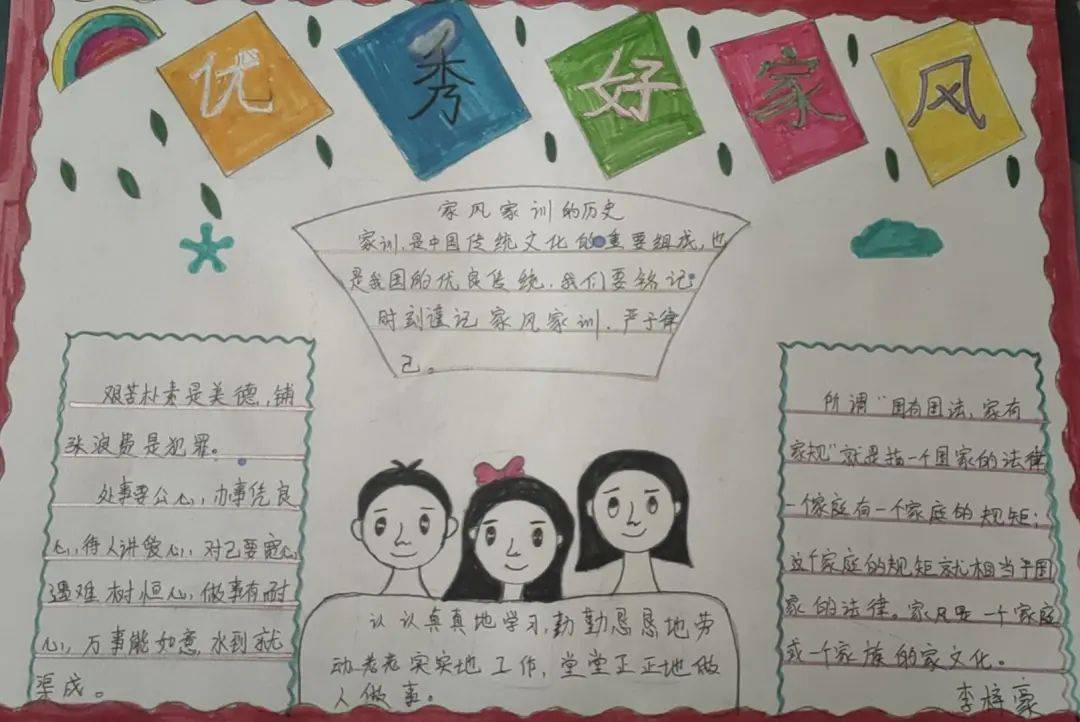 优秀好家风
家风家训的历史
家训,是中国传统文化的重要组成,也
是我国的优良传统.我们要铭记
时刻谨记家风家训.严于律
己。
艰苦朴素是美德,铺
张浪费是犯罪。
处事要公心,办事凭良
心,待人讲爱心,对己要宽心,
遇难树恒心,做事有耐
心,万事能如意,水到就
渠成。
认认真真地学习,勤勤恳恳地劳
动老老实实地工作,堂堂正正地做
人做事。
所谓“国有国法,家有
家规”就是指一个国家的法律
一个家庭有一个家庭的规矩;
这个家庭的规矩就相当于国
家的法律。家风是一个家庭
或一个家族的家文化。
李梓豪